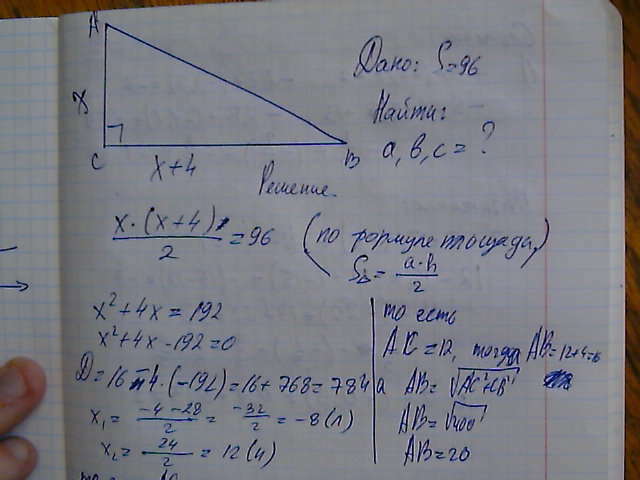 A
x
C
x+4
B
Дано: S=96
Найти:
a, b, c = ?
Решение.
x·(x+4)/2 = 96
(по формуле площади,)
S△ = a·h/2
x²+4x=192
x²+4x-192=0
D=16-4·(-192)=16+768=784
x₁ = -4-28/2 = -32/2 = -8 (л)
x₂ = 24/2 = 12 (и)
то есть
AC=12, тогда AB=12+4=16
а AB=√AC²+CB²
AB=√400
AB=20